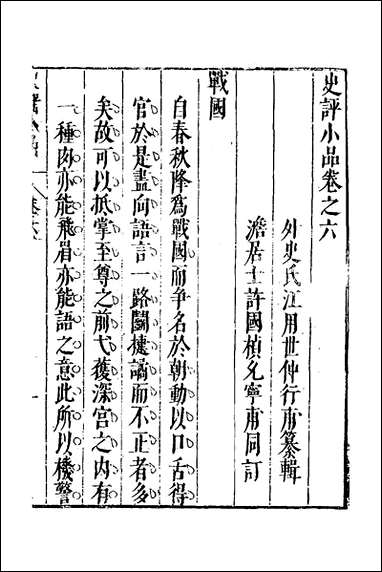 史評小品卷之六
外史氏江用世仲行甫纂輯
澹居士許國楨允寧甫同訂
戰國
自春秋降爲戰國而爭名於朝動以口舌得
官於是盡向語言一路鬬捷譎而不正者多
矣故可以抵掌至尊之前弋獲深宮之內有
一種肉亦能飛眉亦能語之意此所以機警